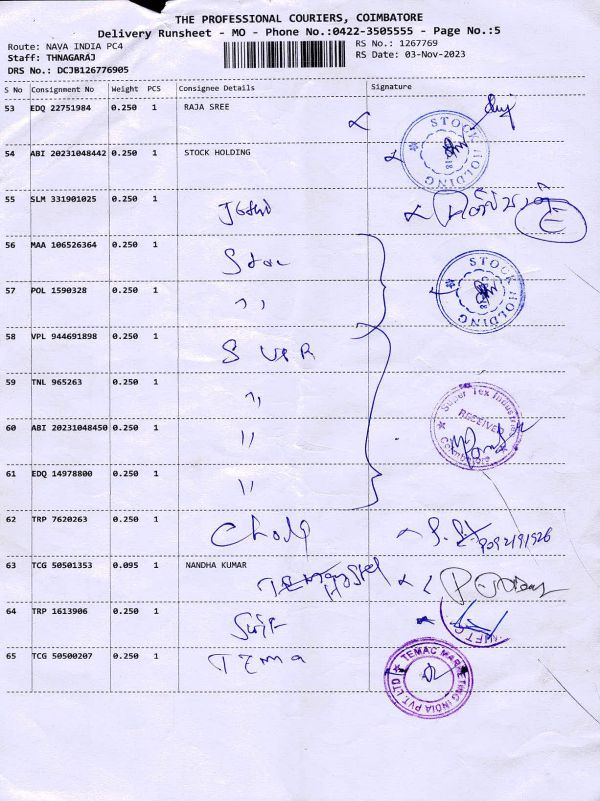 THE PROFESSIONAL COURIERS, COIMBATORE
Delivery Runsheet - MO - Phone No.:0422-3505555 - Page No.:5
Route: NAVA INDIA PC4
RS No.: 1267769
Staff: THNAGARAJ
RS Date: 03-Nov-2023
DRS No.: DCJB126776905
S No Consignment No Weight PCS Consignee Details Signature
53 EDQ 22751984 0.250 1 RAJA SREE
54 ABI 20231048442 0.250 1 STOCK HOLDING
STOCK HOLDING
55 SLM 331901025 0.250 1
56 MAA 106526364 0.250 1 Stoc
57 POL 1590328 0.250 1 ,,
STOCK HOLDING
58 VPL 944691898 0.250 1 SUPR
59 TNL 965263 1 0.250 ,,
60 ABI 20231048450 0.250 1 ,,
Super Tex Industries
RECEIVED
Coimbatore
61 EDQ 14978800 0.250 1 ,,
62 TRP 7620263 0.250 1
63 TCG 50501353 0.095 1 NANDHA KUMAR
64 TRP 1613906 0.250 1
65 TCG 50500207 0.250 1 Tema
TEMAC MARKETING INDIA PVT. LTD